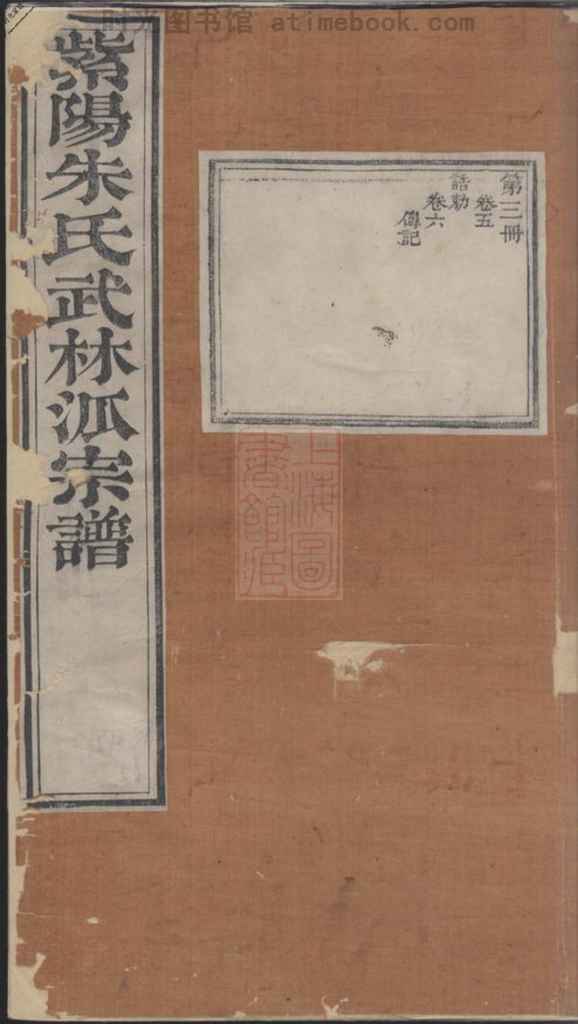 时光图书馆 atimebook.com
紫陽朱氏武林派宗譜
第三冊
卷五
誥勅
卷六
傳記
上海圖
書館藏